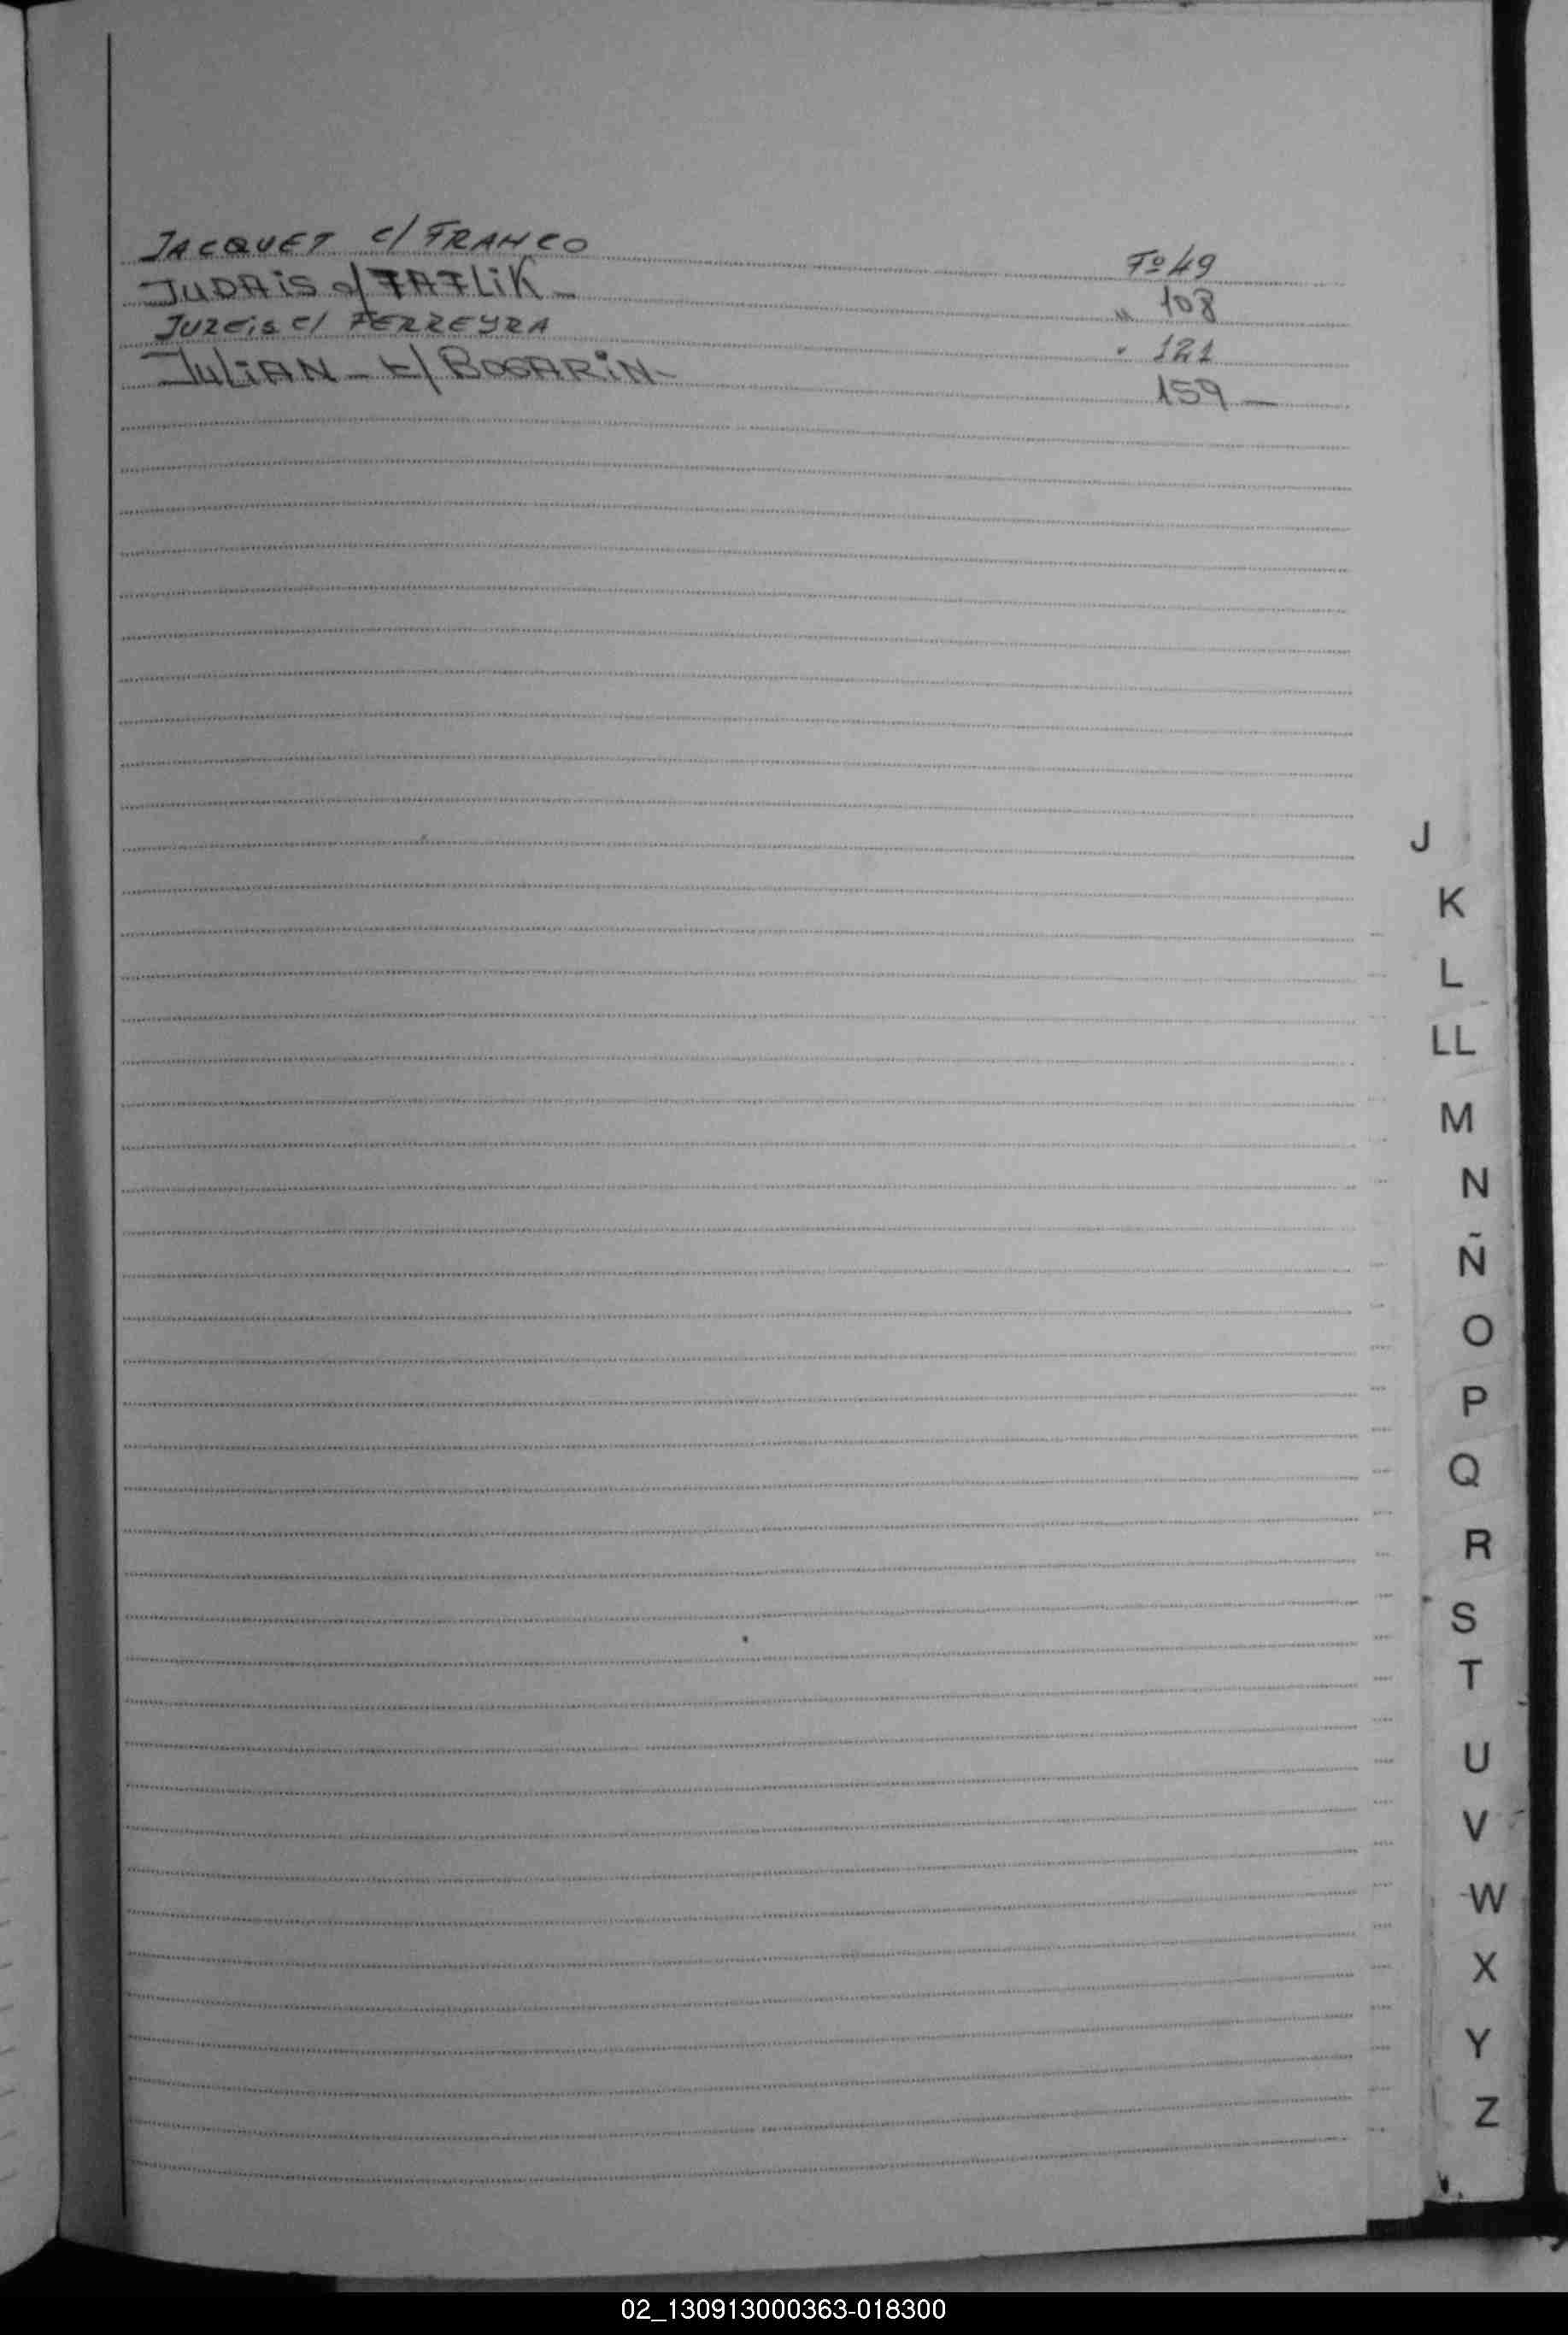 JACQUET c/ FRANCO Fº 49
JUDAIS c/ FATLIK - " 108
JUZEIS c/ FERREYRA " 121
JULIAN - c/ BOGARIN - 159 -
J
K
L
LL
M
N
Ñ
O
P
Q
R
S
T
U
V
W
X
Y
Z
02_130913000363-018300